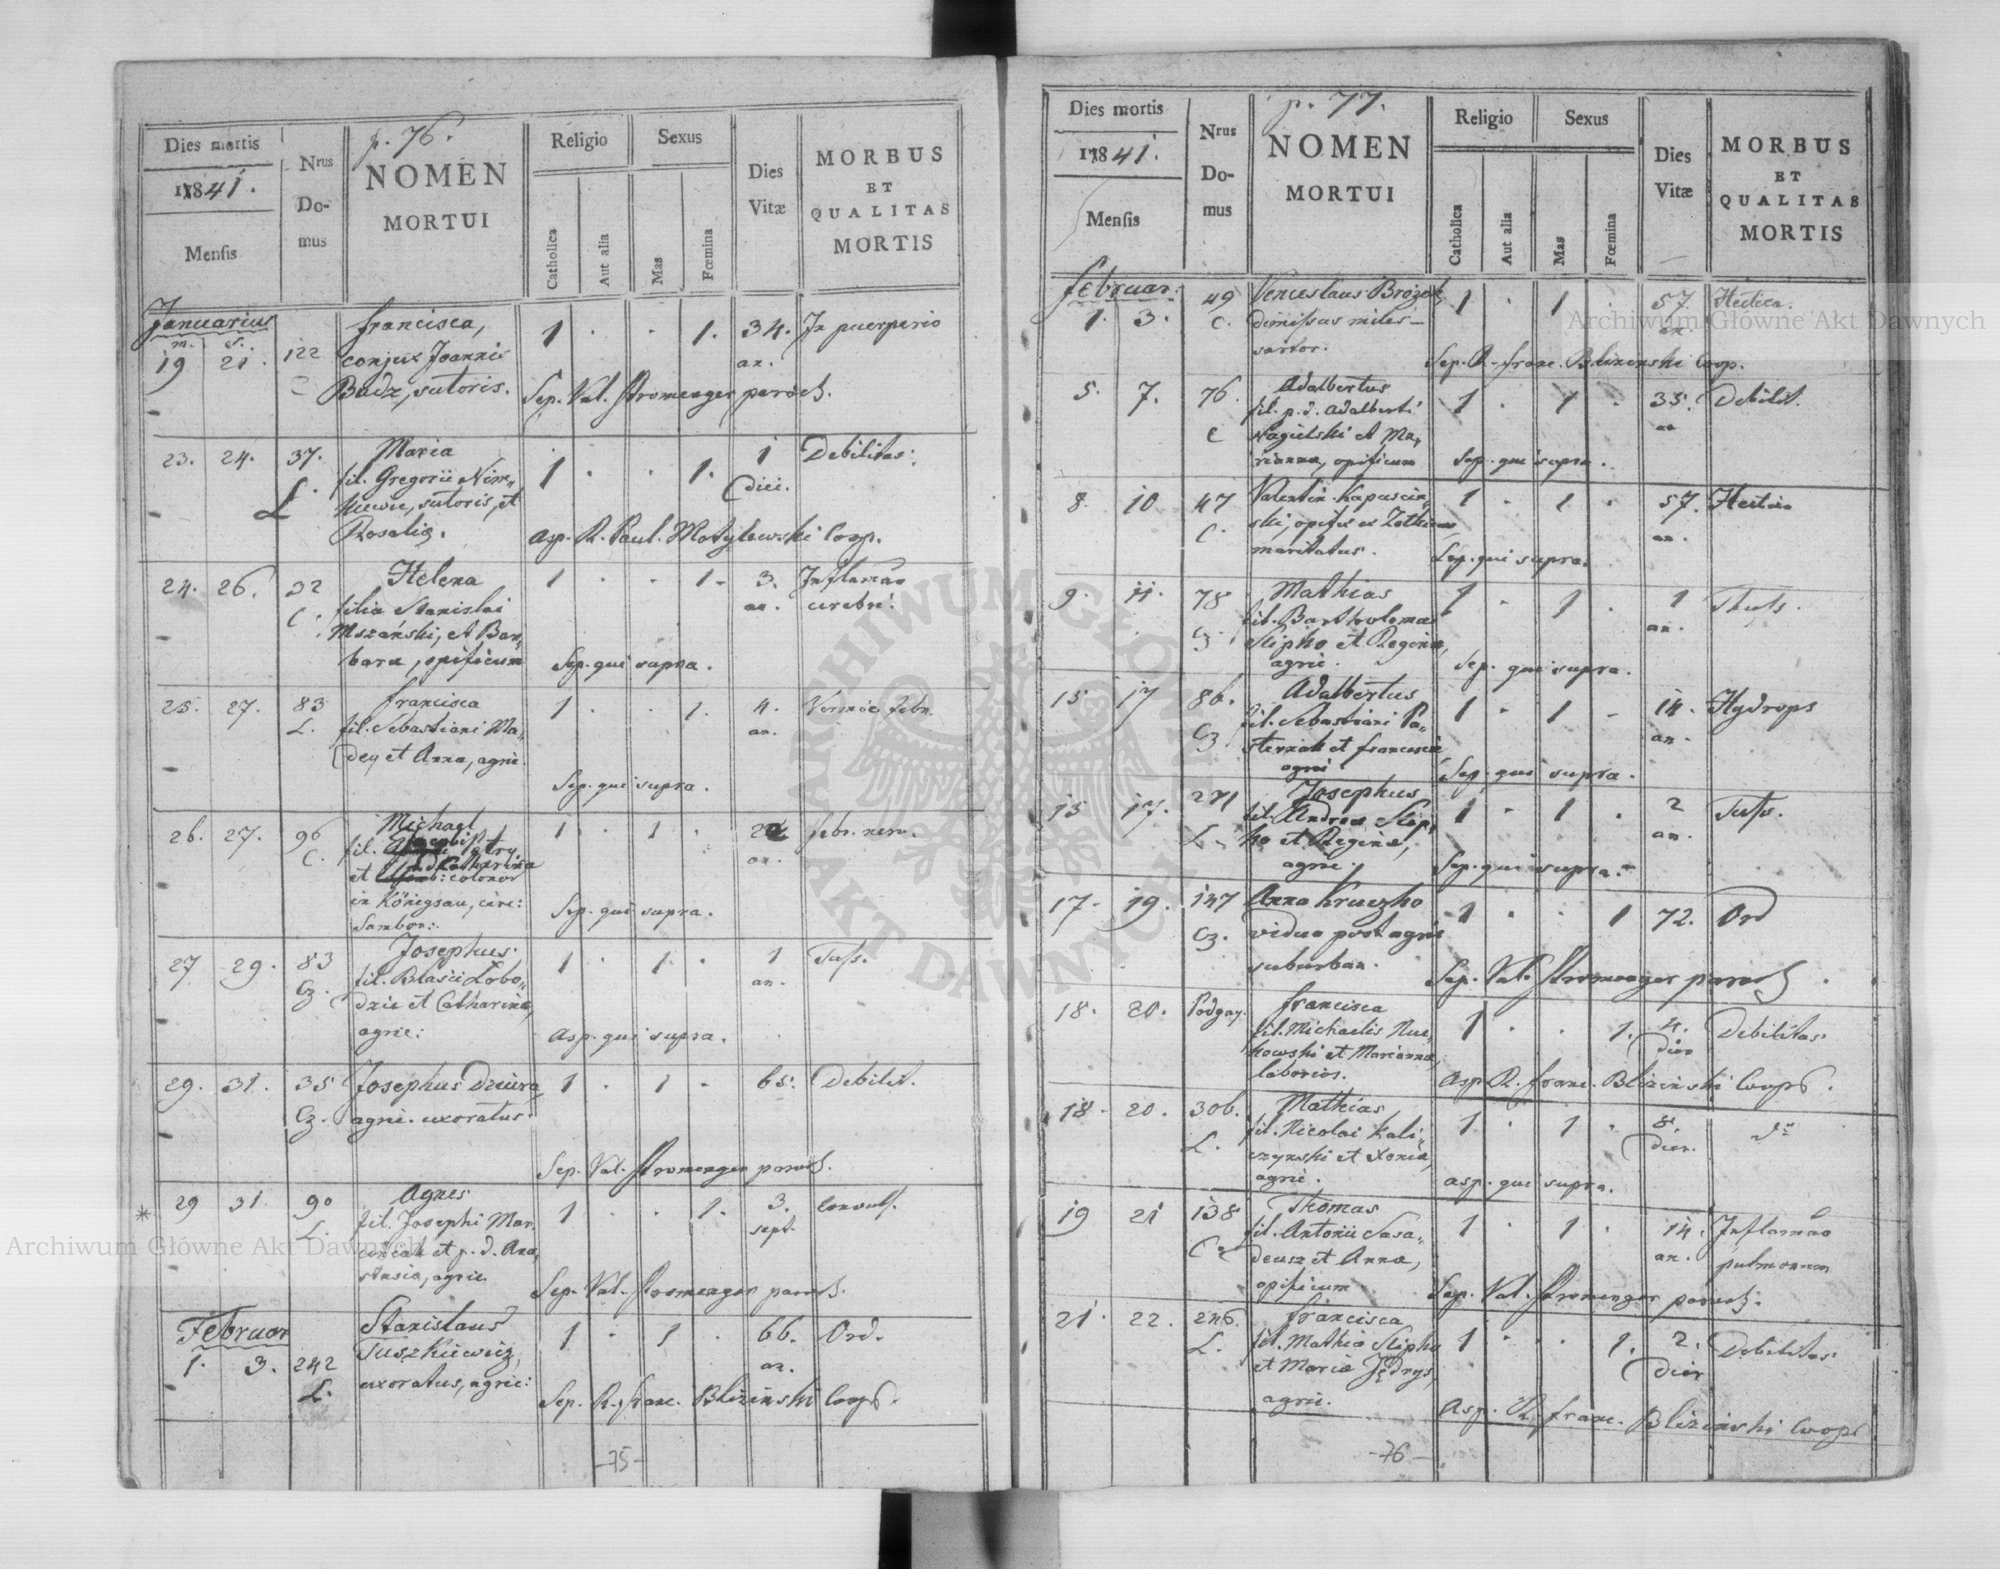 Dies mortis
1841.
Mensis
Nrus
Do-
mus
p. 76.
NOMEN
MORTUI
Religio
Catholica
Aut alia
Sexus
Mas
Fœmina
Dies
Vitæ
MORBUS
ET
QUALITAS
MORTIS
Januarius
m. s.
19 21. 122 Francisca, 1 . . 1. 34. In puerperio
conjux Joannis an.
Budz, sutoris. Sep. Val. Stromenger paroch.
23. 24. 37. Maria 1 . . 1. 1 Debilitas.
L. fil. Gregorii diei.
kiewicz, sutoris, et
Rosaliæ. Asp. R. Paul. Motylewski Coop.
24. 26. 32 Helena 1 . . 1. 3. Inflamão
C. filia Stanislai an. cerebri.
Mszański, et Bar„
baræ, opificum Sep. qui supra.
25. 27. 83 Francisca 1 . . 1. 4. febr.
L. fil. Sebastiani Ma„ an.
dey et Anna, agric.
Sep. qui supra.
26. 27. 96 Michael 1 . 1 . febr. nerv.
C. fil. Petry an.
et Catharina
colonor
in Königsau, circ:
Sambor: Sep. qui supra.
27 29. 83 Josephus 1 . 1 . 1 Tuss.
Cz. fil. Blasii Łobo„ an.
dzic et Catharina,
agric: Asp. qui supra.
29. 31. 35 Josephus Dziura 1 . 1 . 65. Debilit.
Cz. agric. uxoratus.
Sep. Val. Stromenger paroch.
* 29 31. 90 Agnes 1 . . 1. 3. convuls.
L. fil. Josephi Mar„ sept.
ciniak et p. d. Ana„
stasia, agric. Sep. Val. Stromenger paroch.
Februar
1. 3. 242 Stanislaus 1 . 1 . 66. Ord.
L. Tuszkiewicz, an.
uxoratus, agric: Sep. R. Franc. Blizinski Coop.
-75-
Dies mortis
1841.
Mensis
Nrus
Do-
mus
p. 77.
NOMEN
MORTUI
Religio
Catholica
Aut alia
Sexus
Mas
Fœmina
Dies
Vitæ
MORBUS
ET
QUALITAS
MORTIS
Februar.
1. 3. 49 Venceslaus Brożek 1 . 1 . 57. Hectica.
C. dimissus miles - an.
sartor. Sep. R. Franc. Blizinski Coop.
5. 7. 76. Adalbertus 1 . 1 . 35. Debilit.
C fil. p. d. Adalberti an.
Nagielski et Ma„
rianna, opificum Sep. qui supra.
8. 10 47 Valentin. Kapuscin„ 1 . 1 . 57. Hectica
C. ski, opifex ex an.
maritatus. Sep. qui supra.
9. 11. 78 Mathias 1 . 1 . 1 Tuss.
Cz. fil. Bartholomæi an.
Slipko et Regina,
agric. Sep. qui supra.
15 17 86. Adalbertus 1 . 1 . 14. Hydrops
Cz fil. Sebastiani Pa„ an.
sternak et Francisca
agric Sep. qui supra.
15 17. 271 Josephus 1 . 1 . 2 Tuss.
L. fil. Andrea Slip„ an.
ko et Regina,
agric. Sep. qui supra.
17. 19. 147 Anna Kruczko 1 . . 1 72. Ord
Cz. vidua post agric
suburban. Sep. Val. Stromenger paroch.
18. 20. Podgay. Francisca 1 . . 1. 4. Debilitas.
fil. Michaelis dier
kowski et Marianna,
laborios. Asp. R. Franc. Blizinski Coops.
18. 20. 306. Mathias 1 . 1 . 8. do
L. fil. Nicolai Kali„ dier.
czynski et Xenia,
agric. asp. qui supra.
19 21 138 Thomas 1 . 1 . 14. Inflamão
C. fil. Antonii Sasa„ an. pulmonum
deusz et Anna,
opificum Sep. Val. Stromenger paroch.
21. 22. 246. Francisca 1 . . 1. 2. Debilitas
L. fil. Mathia Slipko dier
et Maria Jędrys,
agric. Asp. R. Franc. Blizinski Coop.
-76-
Archiwum Główne Akt Dawnych
Archiwum Główne Akt Dawnych
ARCHIWUM GŁÓWNE
AKT DAWNYCH